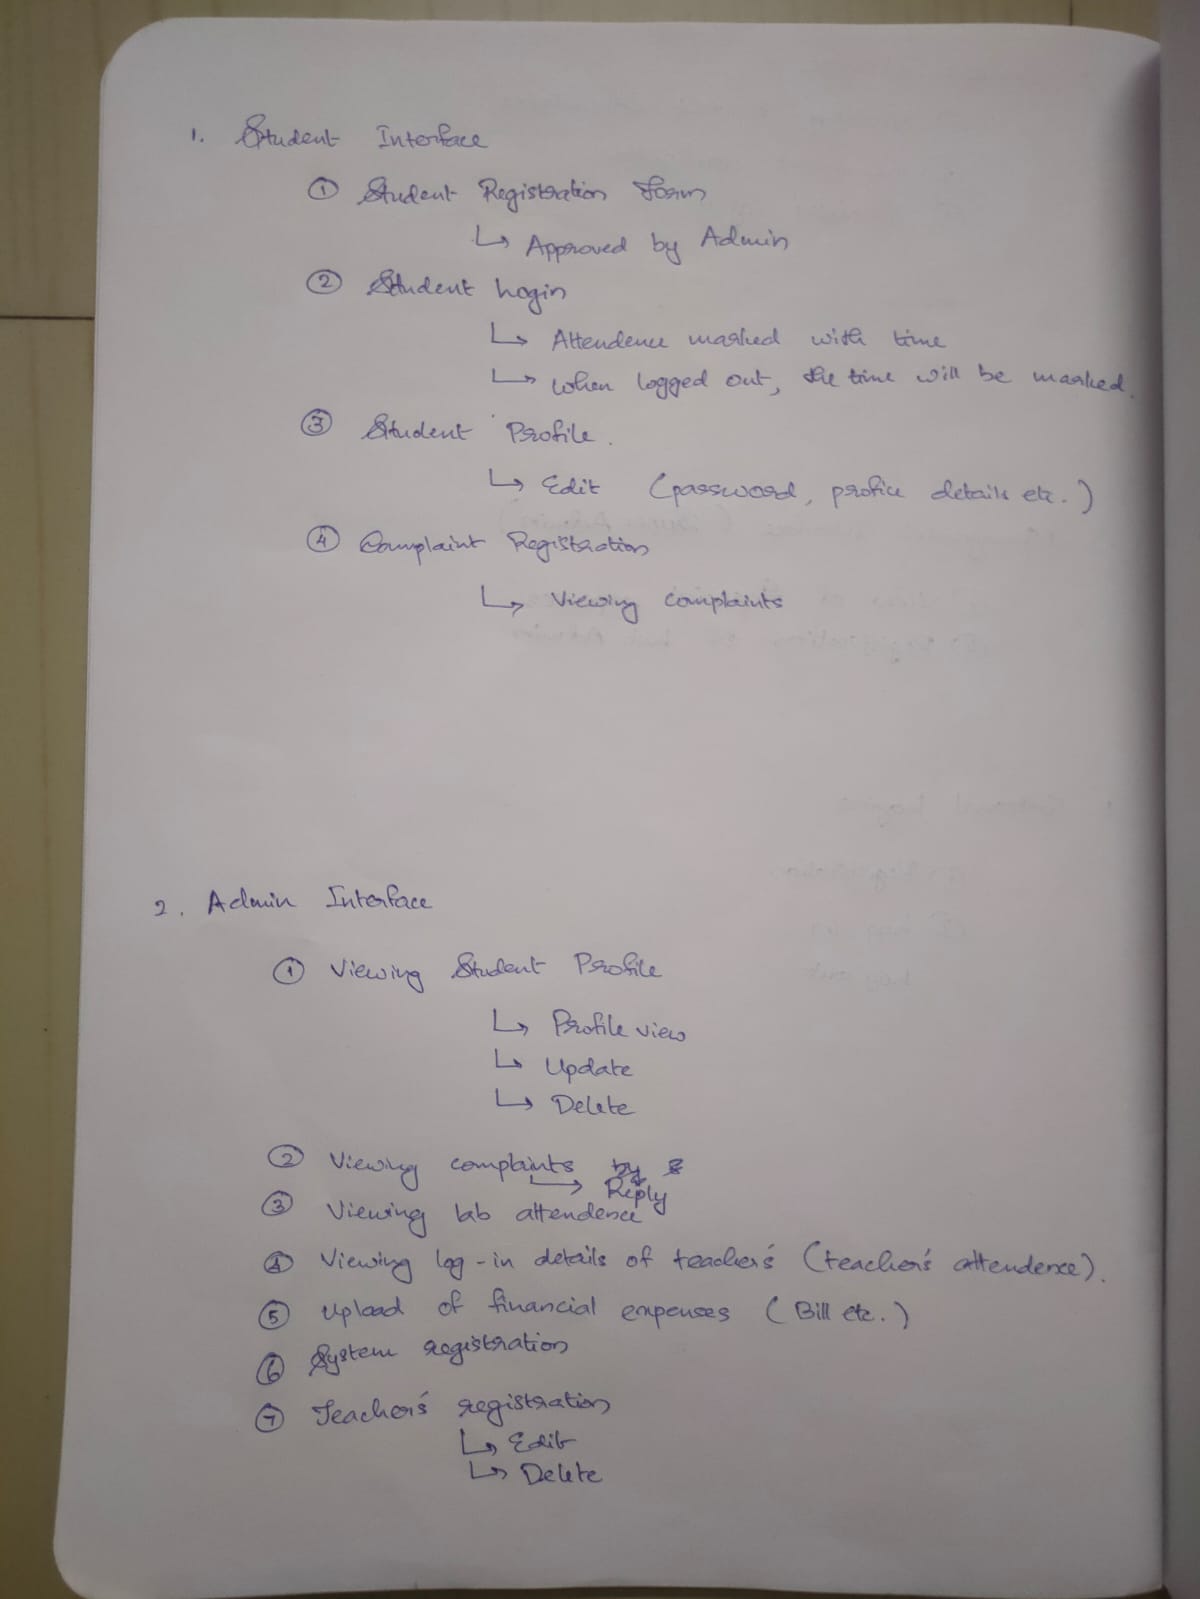 1. Student Interface
① Student Registration Form
↳ Approved by Admin
② Student Login
↳ Attendence marked with time
↳ when logged out, the time will be marked.
③ Student Profile.
↳ Edit (password, profice details etc.)
④ Complaint Registration
↳ Viewing complaints
2. Admin Interface
① Viewing Student Profile
↳ Profile view
↳ Update
↳ Delete
② Viewing complaints by
↳ Reply
③ Viewing lab attendence
④ Viewing log-in details of teacher's (teacher's attendence).
⑤ Upload of financial expenses (Bill etc.)
⑥ System registration
⑦ Teacher's registration
↳ Edit
↳ Delete